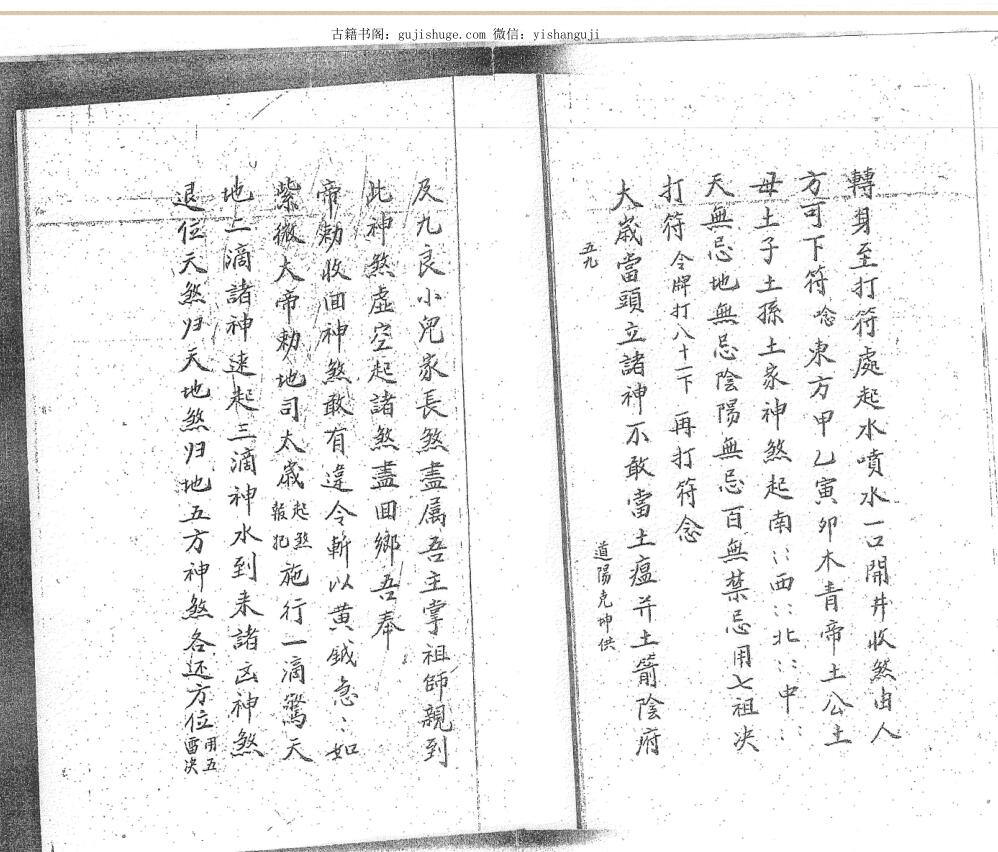 古籍书阁：gujishuge.com 微信：yishanguji
轉身至打符處起水噴水一口開井收煞由人
方可下符唸東方甲乙寅卯木青帝土公土
母土子土孫土家神煞起南：西：北：中：
天無忌地無忌陰陽無忌百無禁忌用七祖决
打符令牌打八十二下再打符念
大歲當頭立諸神不敢當土瘟并土箭陰府
五九
道陽克坤供
及九良小兒家長煞盡属吾主掌祖師親到
此神煞虛空起諸煞盡回鄉吾奉
帝勅收回神煞敢有違令斬以黄鉞急：如
紫微大帝勅地司太歲起煞報犯施行一滴驚天
地二滴諸神速起三滴神水到来諸凶神煞
退位天煞归天地煞归地五方神煞各还方位用五雷决